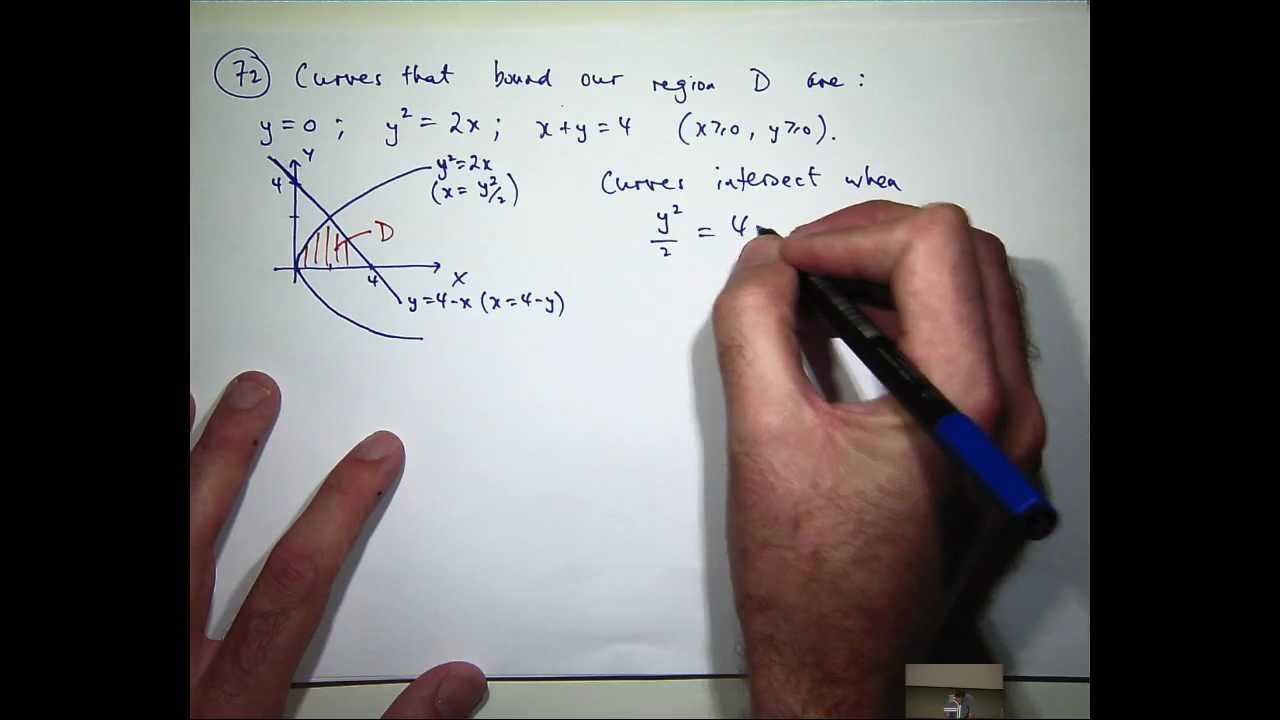 72 Curves that bound our region D are:
y = 0 ; y² = 2x ; x + y = 4 (x ⩾ 0 , y ⩾ 0).
y
4
y² = 2x
(x = y²/2)
D
4
x
y = 4 - x (x = 4 - y)
Curves intersect when
y²/2 = 4